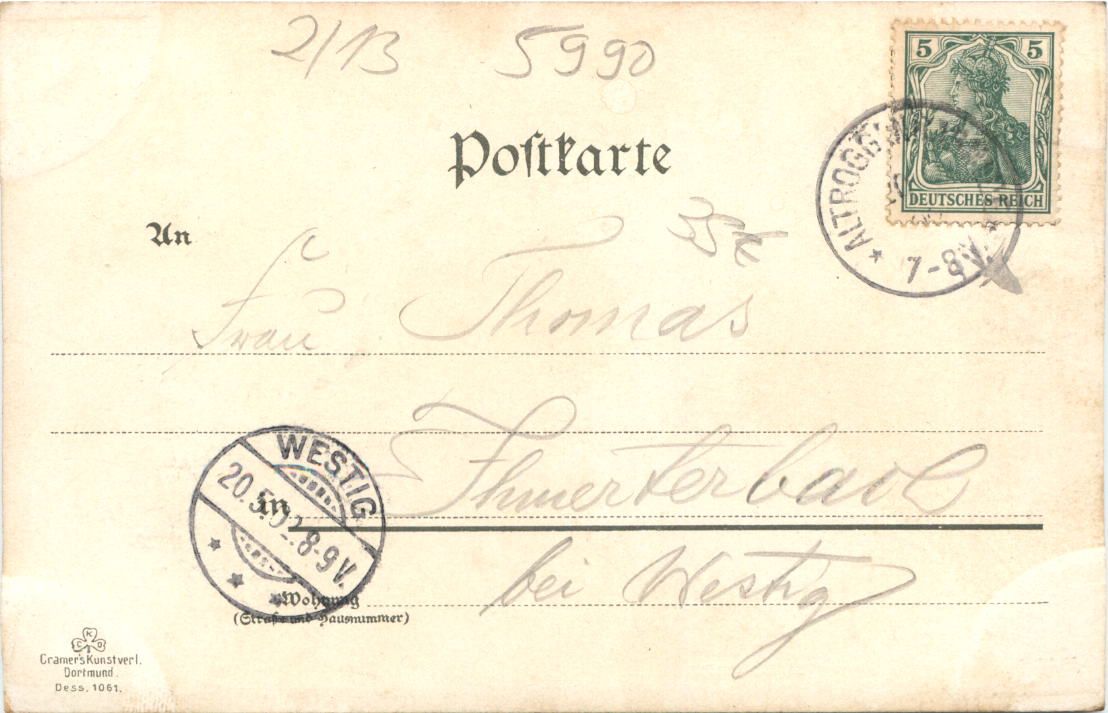 2/13 5990
5 5
DEUTSCHES REICH
Poſtkarte
ALTROGG
7-8V.
An
35
Frau Thomas
Ihmerterbach
WESTIG
20.5.02.8-9V.
in
bei Westig
Wohnung
(Straße und Hausnummer)
K
C D
Cramer's Kunstverl.
Dortmund.
Dess. 1061.